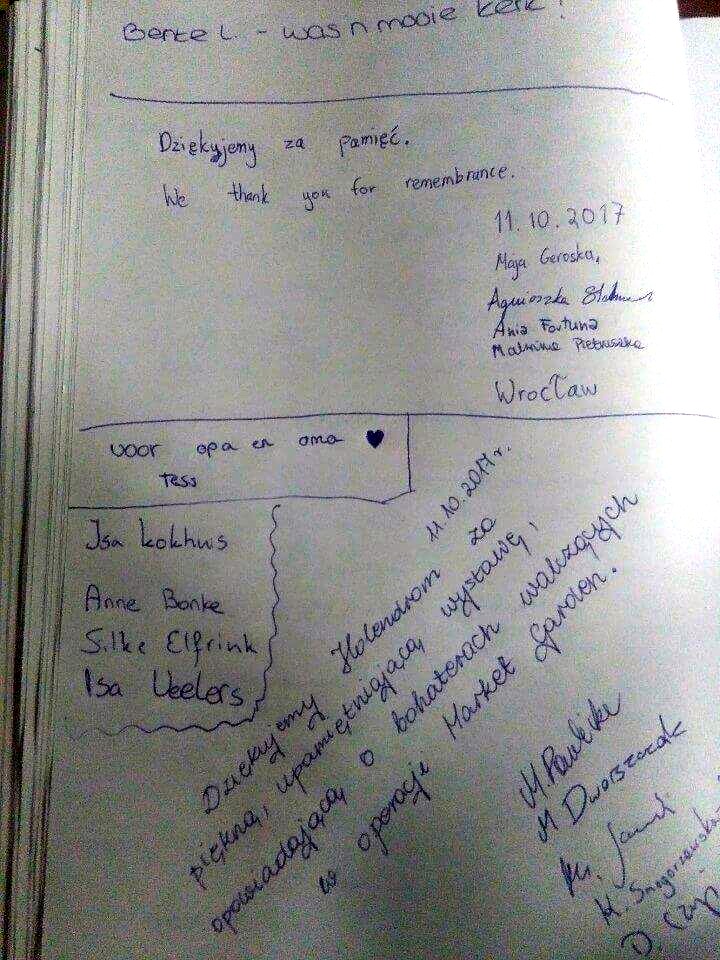 Bente L. - was n mooie kerk!
Dziękujemy za pamięć.
We thank you for remembrance.
11.10.2017
Maja Geroska,
Agnieszka
Ania Fortuna
Malwina Pietruszka
Wrocław
voor opa en oma ♥
Tess
Isa Kokhuis
Anne Bonke
Silke Elfrink
Isa Veelers
11.10.2017r.
Dziękujemy Holendrom za
piękną, upamiętniającą wystawę,
opowiadającą o bohaterach walczących
w operacji Market Garden.
M. Pawlik
M Dworszczak
K.
D.